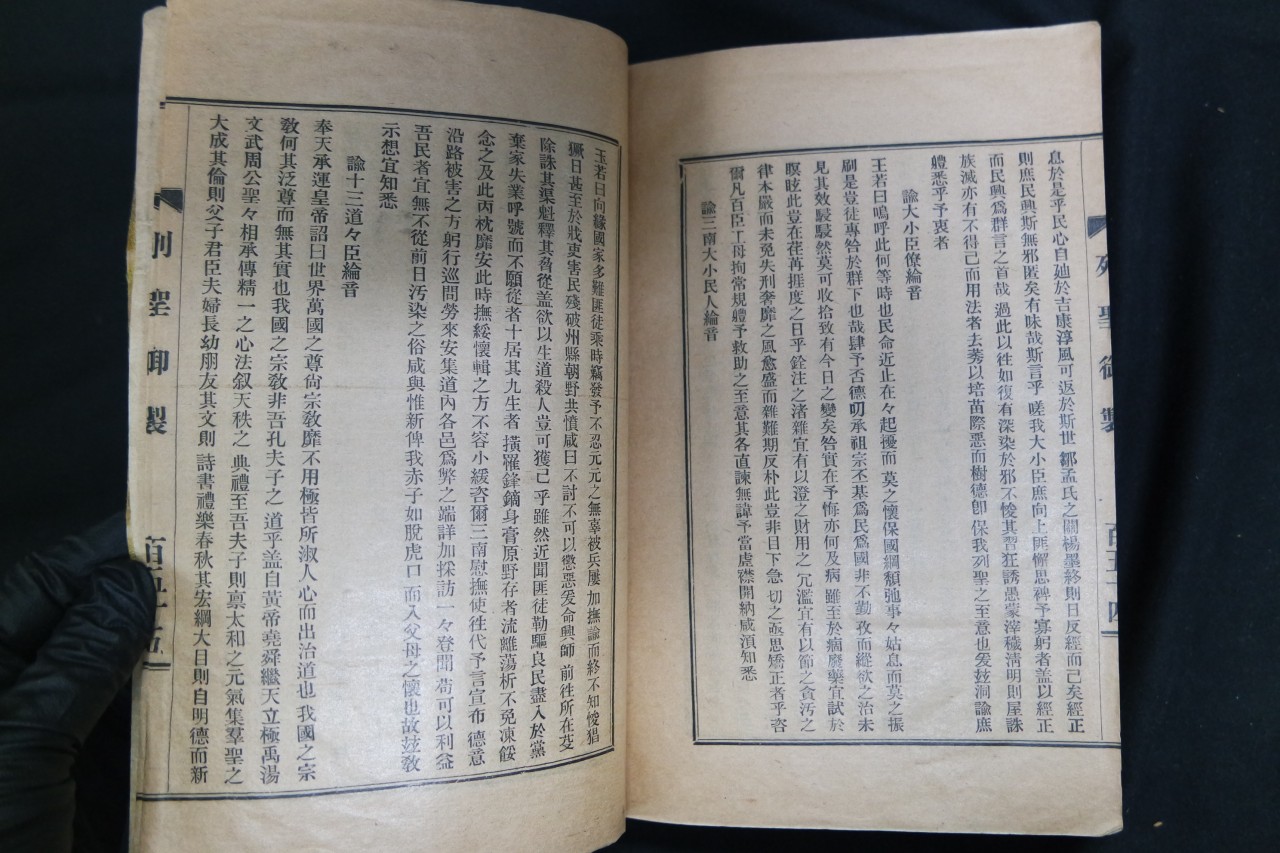 列聖御製
百五十四
息於是乎民心自廸於吉康淳風可返於斯世 鄒孟氏之闢楊墨終則曰反經而已矣經正
則庶民興斯無邪匿矣有味哉斯言乎 嗟我大小臣庶向上匪懈思裨予寡躬者盖以經正
而民興爲群言之首哉 過此以徃如復有深染於邪不悛其習狂誘愚蒙滓穢淸明則屋誅
族滅亦有不得已而用法者去莠以培苗際惡而樹德卽 保我列聖之至意也爰玆洞諭庶
軆悉乎予衷者
諭大小臣僚綸音
王若曰嗚呼此何等時也民命近止在々起擾而 莫之懷保國綱頹弛事々姑息而莫之振
刷是豈徒專咎於群下也哉肆予否德叨承祖宗丕基爲民爲國非不勤孜而縱欲之治未
見其效駸駸然莫可收拾致有今日之變矣咎實在予悔亦何及病 雖至於痼廢藥宜試於
瞑眩此豈在荏苒捱度之日乎銓注之渚雜宜有以澄之財用之 冗濫宜有以節之貪汚之
律木嚴而未免失刑奢靡之風愈盛而雜難期反朴此豈非目下急 切之亟思矯正者乎咨
爾凡百臣工毋拘常規軆予救助之至意其各直諫無諱予當虛襟開納咸須知悉
諭三南大小民人綸音
玉若曰向緣國家多難匪徒乘時竊發予不忍元元之無辜被兵屢 加撫諭而終不知悛猖
獗日甚至於戕吏害民殘破州縣朝野共憤咸曰不討不可以懲惡爰命興師 前徃所在芟
除誅其渠魁釋其脅從盖欲以生道殺人豈可獲已 乎雖然近聞匪徒勒驅良民盡入於黨
棄家失業呼號而不願從者十居其九生者 橫罹鋒鏑身膏原野存者 流離蕩析不免凍餒
念之及此丙枕靡安此時撫綏懷輯之方不容小緩咨爾三南慰撫使徃代予言宣布 德意
沿路被害之方躬行巡問勞來安集道內各邑爲弊之端詳加採訪一々登聞苟可以利益
吾民者宜無不從前日汚染之俗咸與惟新俾我赤子如脫虎口 而入父母之懷也故玆敎
示想宜知悉
諭十三道々臣綸音
奉天承運皇帝詔曰世界萬國之尊尙宗敎靡不用極皆所淑人心而出治道也 我國之宗
敎何其泛尊而無其實也我國之宗敎非吾孔夫子之 道乎盖自黃帝堯舜繼天立極禹湯
文武周公聖々相承傳精一之心法叙天秩之 典禮至吾夫子則禀太和之元氣集羣聖之
大成其倫則父子君臣夫婦長幼朋友其文則 詩書禮樂春秋其宏綱大目則自明德而新
列聖御製
百五十五